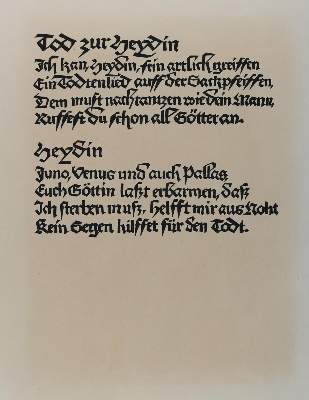 Tod zur Heydin
Ich kan, Heydin, fein artlich greiffen
Ein Todtenlied auff der Sackpfeiffen,
Dem must nachtantzen wie dein Mann,
Ruffest du schon all Götter an.
Heydin
Juno, Venus und auch Pallas
Euch Göttin laßt erbarmen, daß
Ich sterben muß, helfft mir aus Noht
Kein Segen hilffet für den Todt.